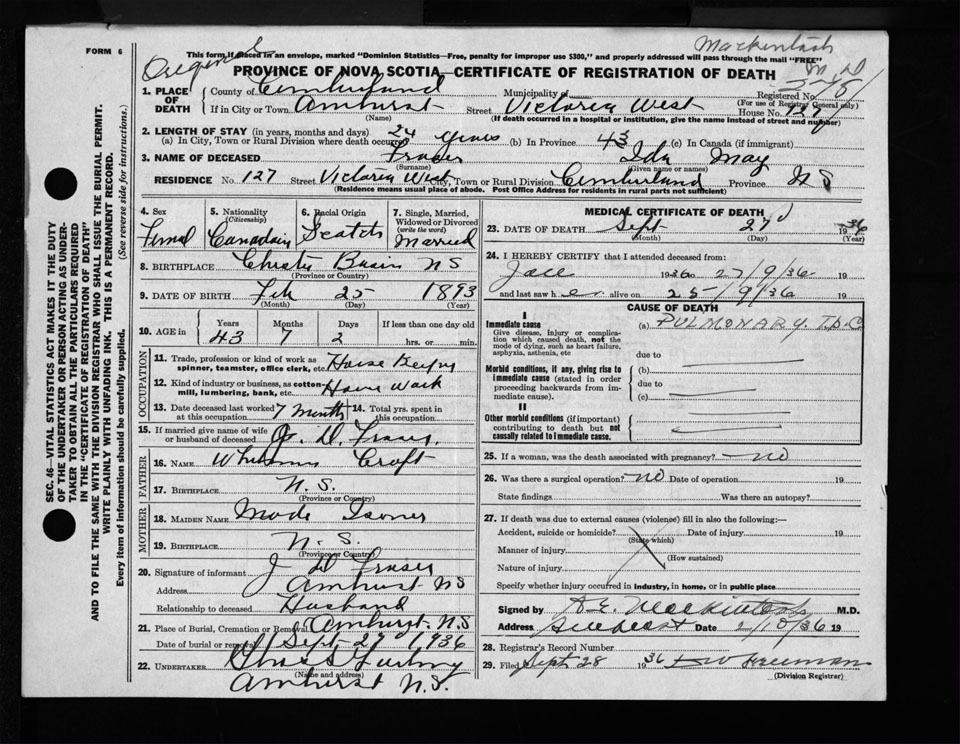 FORM 6
Original
Mackintosh
This form if placed in an envelope, marked "Dominion Statistics—Free, penalty for improper use $300," and properly addressed will pass through the mail "FREE"
PROVINCE OF NOVA SCOTIA—CERTIFICATE OF REGISTRATION OF DEATH
1. PLACE OF DEATH
County of Cumberland Municipality of Registered No.
(For use of Registrar General only)
If in City or Town Amherst Street Victoria West House No. 127
(Name) (If death occurred in a hospital or institution, give the name instead of street and number)
2. LENGTH OF STAY (in years, months and days)
(a) In City, Town or Rural Division where death occurred 24 years (b) In Province 43 (c) In Canada (if immigrant)
3. NAME OF DECEASED Fraser Ida May
(Surname) (Given name or names)
RESIDENCE No. 127 Street Victoria West City, Town or Rural Division Cumberland Province N S
(Residence means usual place of abode. Post Office Address for residents in rural parts not sufficient)
4. Sex Femal
5. Nationality (Citizenship) Canadain
6. Racial Origin Scotch
7. Single, Married, Widowed or Divorced (write the word) Married
8. BIRTHPLACE Chester Basin N S
(Province or Country)
9. DATE OF BIRTH Feb 25 1893
(Month) (Day) (Year)
10. AGE in Years Months Days If less than one day old
43 7 2 hrs. or min.
OCCUPATION
11. Trade, profession or kind of work as spinner, teamster, office clerk, etc.
12. Kind of industry or business, as cotton mill, lumbering, bank, etc. House Work
13. Date deceased last worked at this occupation 7 months
14. Total yrs. spent in this occupation
15. If married give name of wife or husband of deceased D. Fraser
FATHER
16. NAME Croft
17. BIRTHPLACE N. S.
(Province or Country)
MOTHER
18. MAIDEN NAME
19. BIRTHPLACE N. S.
(Province or Country)
20. Signature of informant J D Fraser
Address Amherst N S
Relationship to deceased Husband
21. Place of Burial, Cremation or Removal Amherst N S
Date of burial or removal Sept 29 1936
22. UNDERTAKER Chas S
(Name and address)
Amherst N. S.
MEDICAL CERTIFICATE OF DEATH
23. DATE OF DEATH Sept 27 1936
(Month) (Day) (Year)
24. I HEREBY CERTIFY that I attended deceased from:
1936 to 27/9/36 19
and last saw h er alive on 25/9/36 19
CAUSE OF DEATH
I
Immediate cause (a) PULMONARY. T.B.C
Give disease, injury or complication which caused death, not the mode of dying, such as heart failure, asphyxia, asthenia, etc
due to
Morbid conditions, if any, giving rise to immediate cause (stated in order proceeding backwards from immediate cause).
(b)
due to
(c)
II
Other morbid conditions (if important) contributing to death but not causally related to immediate cause.
25. If a woman, was the death associated with pregnancy? no
26. Was there a surgical operation? no Date of operation 19
State findings Was there an autopsy?
27. If death was due to external causes (violence) fill in also the following:—
Accident, suicide or homicide? Date of injury 19
(State which)
Manner of injury
(How sustained)
Nature of injury
Specify whether injury occurred in industry, in home, or in public place
Signed by A. E. Mackintosh M.D.
Address Amherst Date 2/10/36 19
28. Registrar's Record Number
29. Filed Sept 28 1936 Freeman
(Division Registrar)
SEC. 46—VITAL STATISTICS ACT MAKES IT THE DUTY
OF THE UNDERTAKER OR PERSON ACTING AS UNDERTAKER TO OBTAIN ALL THE PARTICULARS REQUIRED
IN THE "CERTIFICATE OF REGISTRATION OF DEATH"
AND TO FILE THE SAME WITH THE DIVISION REGISTRAR WHO SHALL ISSUE THE BURIAL PERMIT.
WRITE PLAINLY WITH UNFADING INK. THIS IS A PERMANENT RECORD.
Every item of information should be carefully supplied. (See reverse side for instructions.)